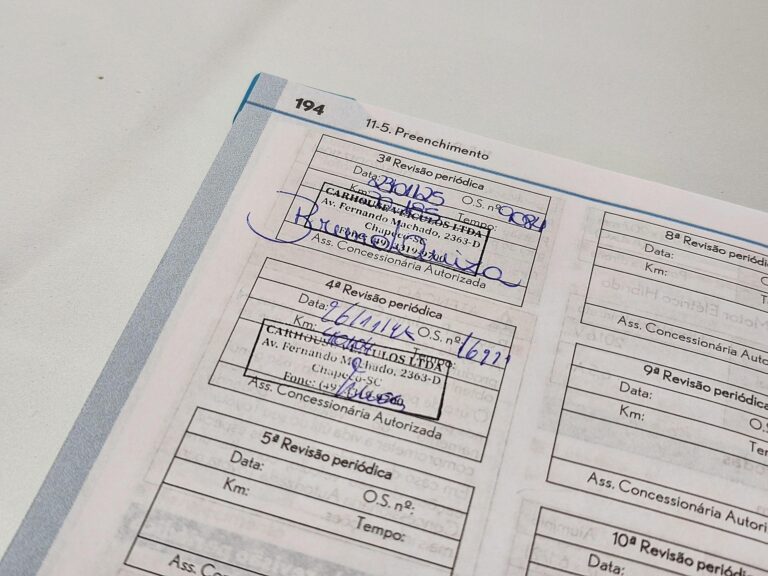 194
11-5. Preenchimento
3ª Revisão periódica
Data: 23/01/25 O.S. nº:
Km: Tempo:
CARHOUSE VEÍCULOS LTDA
Av. Fernando Machado, 2363-D
Chapecó-SC
Ass. Concessionária Autorizada
4ª Revisão periódica
Data: O.S. nº:
Km: Tempo:
CARHOUSE VEÍCULOS LTDA
Av. Fernando Machado, 2363-D
Chapecó-SC
Fone: (49)
Ass. Concessionária Autorizada
5ª Revisão periódica
Data: O.S. nº:
Km: Tempo:
Ass.
8ª Revisão
Data:
Km:
Ass. Concessionária
9ª Revisão
Data: O.S.
Km:
Ass. Concessionária
10ª Revisão
Data: